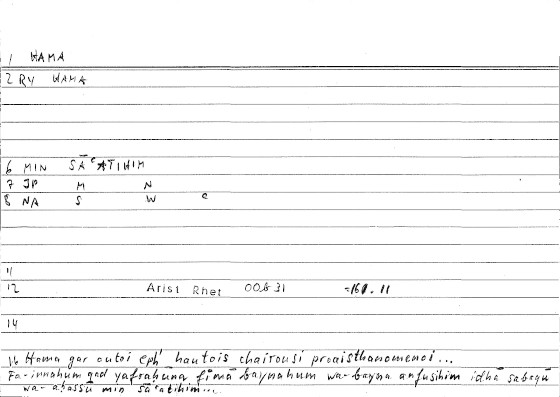 1 HAMA
2 RY HAMA
6 MIN SĀʿATIHIM
7 JP M N
8 NA S W ʿ
11
12 Arist Rhet 00631 =161.11
14
16 Hama gar outoi eph' hautois chairousi proaisthanomenoi...
Fa-innahum qad yafraḥūna fīmā baynahum wa-bayna anfusihim idhā sabaqū
wa-aḥassū min sāʿatihim...